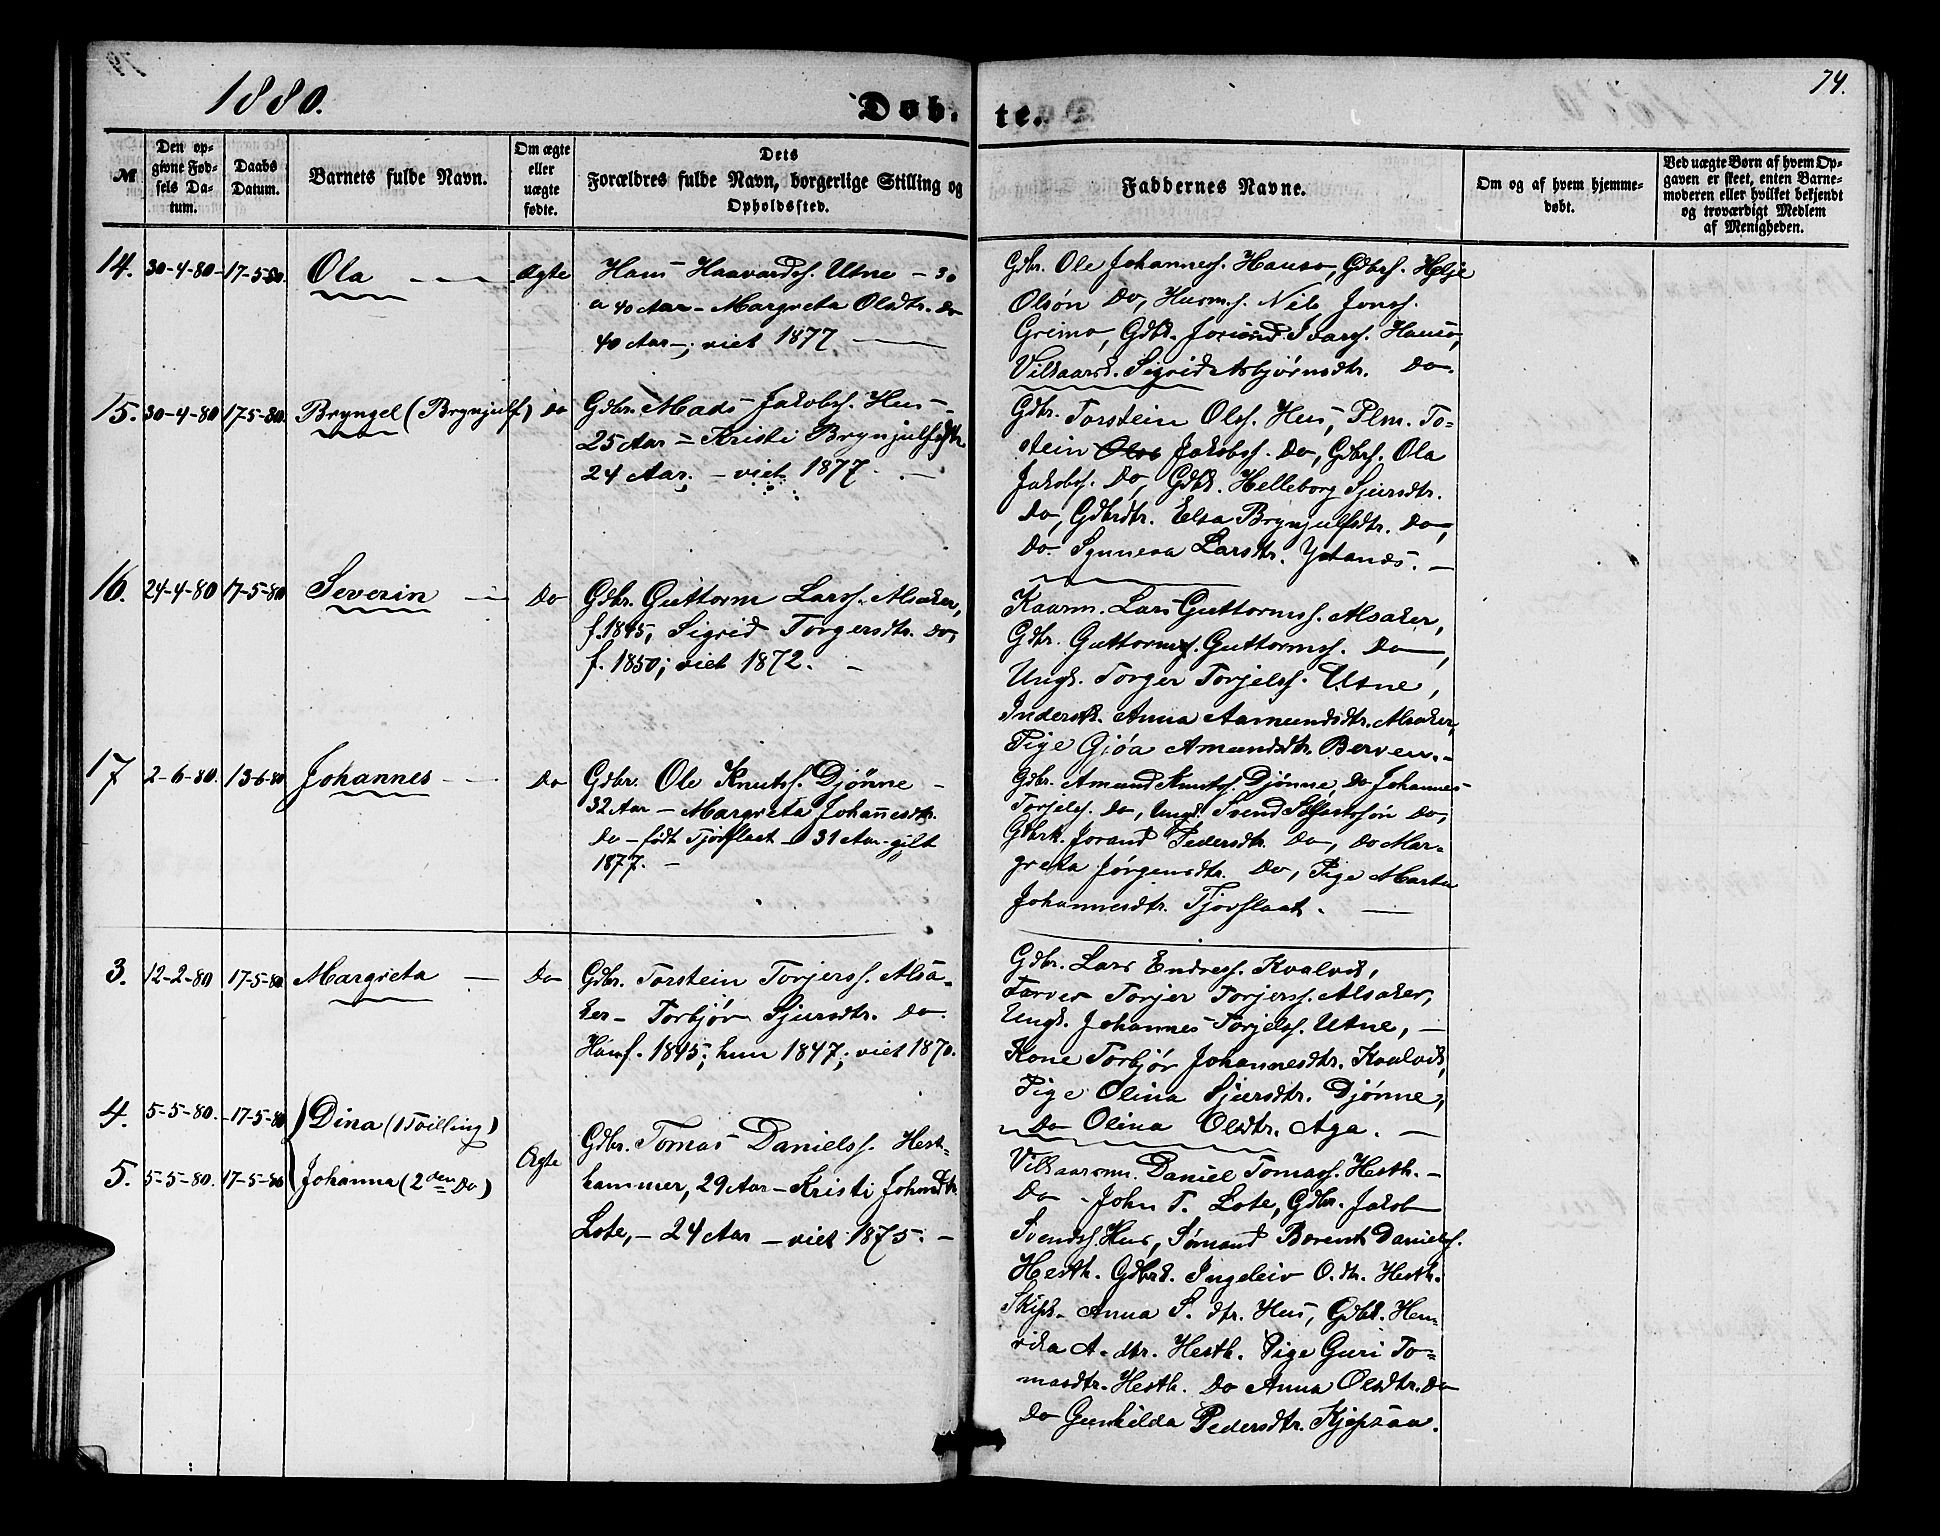 1880.
Døb.
te.
74.
№
Den opgivne Fødsels Datum.
Daabs Datum.
Barnets fulde Navn.
Om ægte eller uægte fødte.
Dets
Forældres fulde Navn, borgerlige Stilling og
Opholdssted.
Faddernes Navne.
Om og af hvem hjemmedøbt.
Ved uægte Børn af hvem Opgaven er skeet, enten Barnemoderen eller hvilket bekjendt og troværdigt Medlem af Menigheden.
14. 30-4-80 17-5-80. Ola Ægte
Hans Haavardss. Utne
40 Aar - Margreta Olsdtr. Do
40 Aar -; viet 1877
Gdbr. Ole Johanness. Hauso, Gdbrs. Helje
Olsøn Do, Husms. Nils Jonss.
Grimo, Gdbk. Jorand Ivars. Hauso,
Vilkaarsk. Sigrid Asbjørnsdtr. Do.
15. 30-4-80 17-5-80. Bryngel (Brynjulf) Do
Gdbr. Mads Jakobss. Hus -
25 Aar = Kristi Brynjulfsdtr.
24 Aar. - viet 1877. -
Gdbr. Torstein Olss. Hus, Plm. To-
stein Olss Jakobss. Do, Gdbrs. Ola
Jakobss. Do, Gdbk. Helleborg Sjursdtr.
Do, Gdbrdtr. Elsa Brynjulfsdtr. Do,
Do Synneva Larsdtr. Ystanes. -
16. 24-4-80 17-5-80 Severin Do
Gdbr. Guttorm Larss. Alsaker,
f. 1845, Sigrid Torgersdtr. Do,
f. 1850; viet 1872. -
Kaarm. Lars Guttormss. Alsaker,
Gdbr. Guttorm Guttormss. Do,
Ungk. Torger Torjelss. Utne,
Inderstk. Anna Aamundsdtr. Alsaker,
Pige Gjøa Amundsdtr. Berven. -
17 2-6-80. 13-6-80 Johannes Do
Gdbr. Ole Knutss. Djønne -
32 Aar - Margreta Johannesdtr.
Do - født Tjoflaat - 31 Aar - gift
1877. -
Gdbr. Amund Knutss. Djønne, Do Johannes
Torjels. Do, Ungk. Svend Do,
Gdbrk. Jorand Pedersdtr. Do, Do Mar-
greta Jørgensdtr. Do, Pige Marta
Johannesdtr. Tjoflaat. -
3. 12-2-80 17-5-80 Margreta - Do
Gdbr. Torstein Torjerss. Alsa-
ker - Torbjør Sjursdtr. Do.
Han f. 1845; hun 1847; viet 1870.
Gdbr. Lars Endress. Kvalvik,
Farver Torjer Torjerss. Alsaker,
Ungk. Johannes Torjelss. Utne, -
Kone Torbjør Johannesdtr. Kvalvik,
Pige Olina Sjursdtr. Djønne,
Do Olina Olsdtr. Aga. -
4. 5-5-80. 17-5-80 Dina (1 Tvilling)
5. 5-5-80. 17-5-80 Johanna (2den Do) Ægte
Gdbr. Tomas Danielss. Hest-
hammer, 29 Aar - Kristi Johnsdtr.
Lote, - 24 Aar - viet 1875. -
Vilkaarsm. Daniel Tomass. Hesth. -
Do - John T. Lote, Gdbr. Jakob
Svendss. Hus, Sømand Berent Danielss.
Hesth. Gdbrk. Ingeleiv O.dtr. Hesth.
Skipk. Anna S. dtr. Hus, Gdbk. Hen-
rika A. dtr. Hesth. Pige Guri To-
masdtr. Hesth. Do Anna Olsdtr. Do
Do Gunhilda Pedersdtr. Kjepsaa.